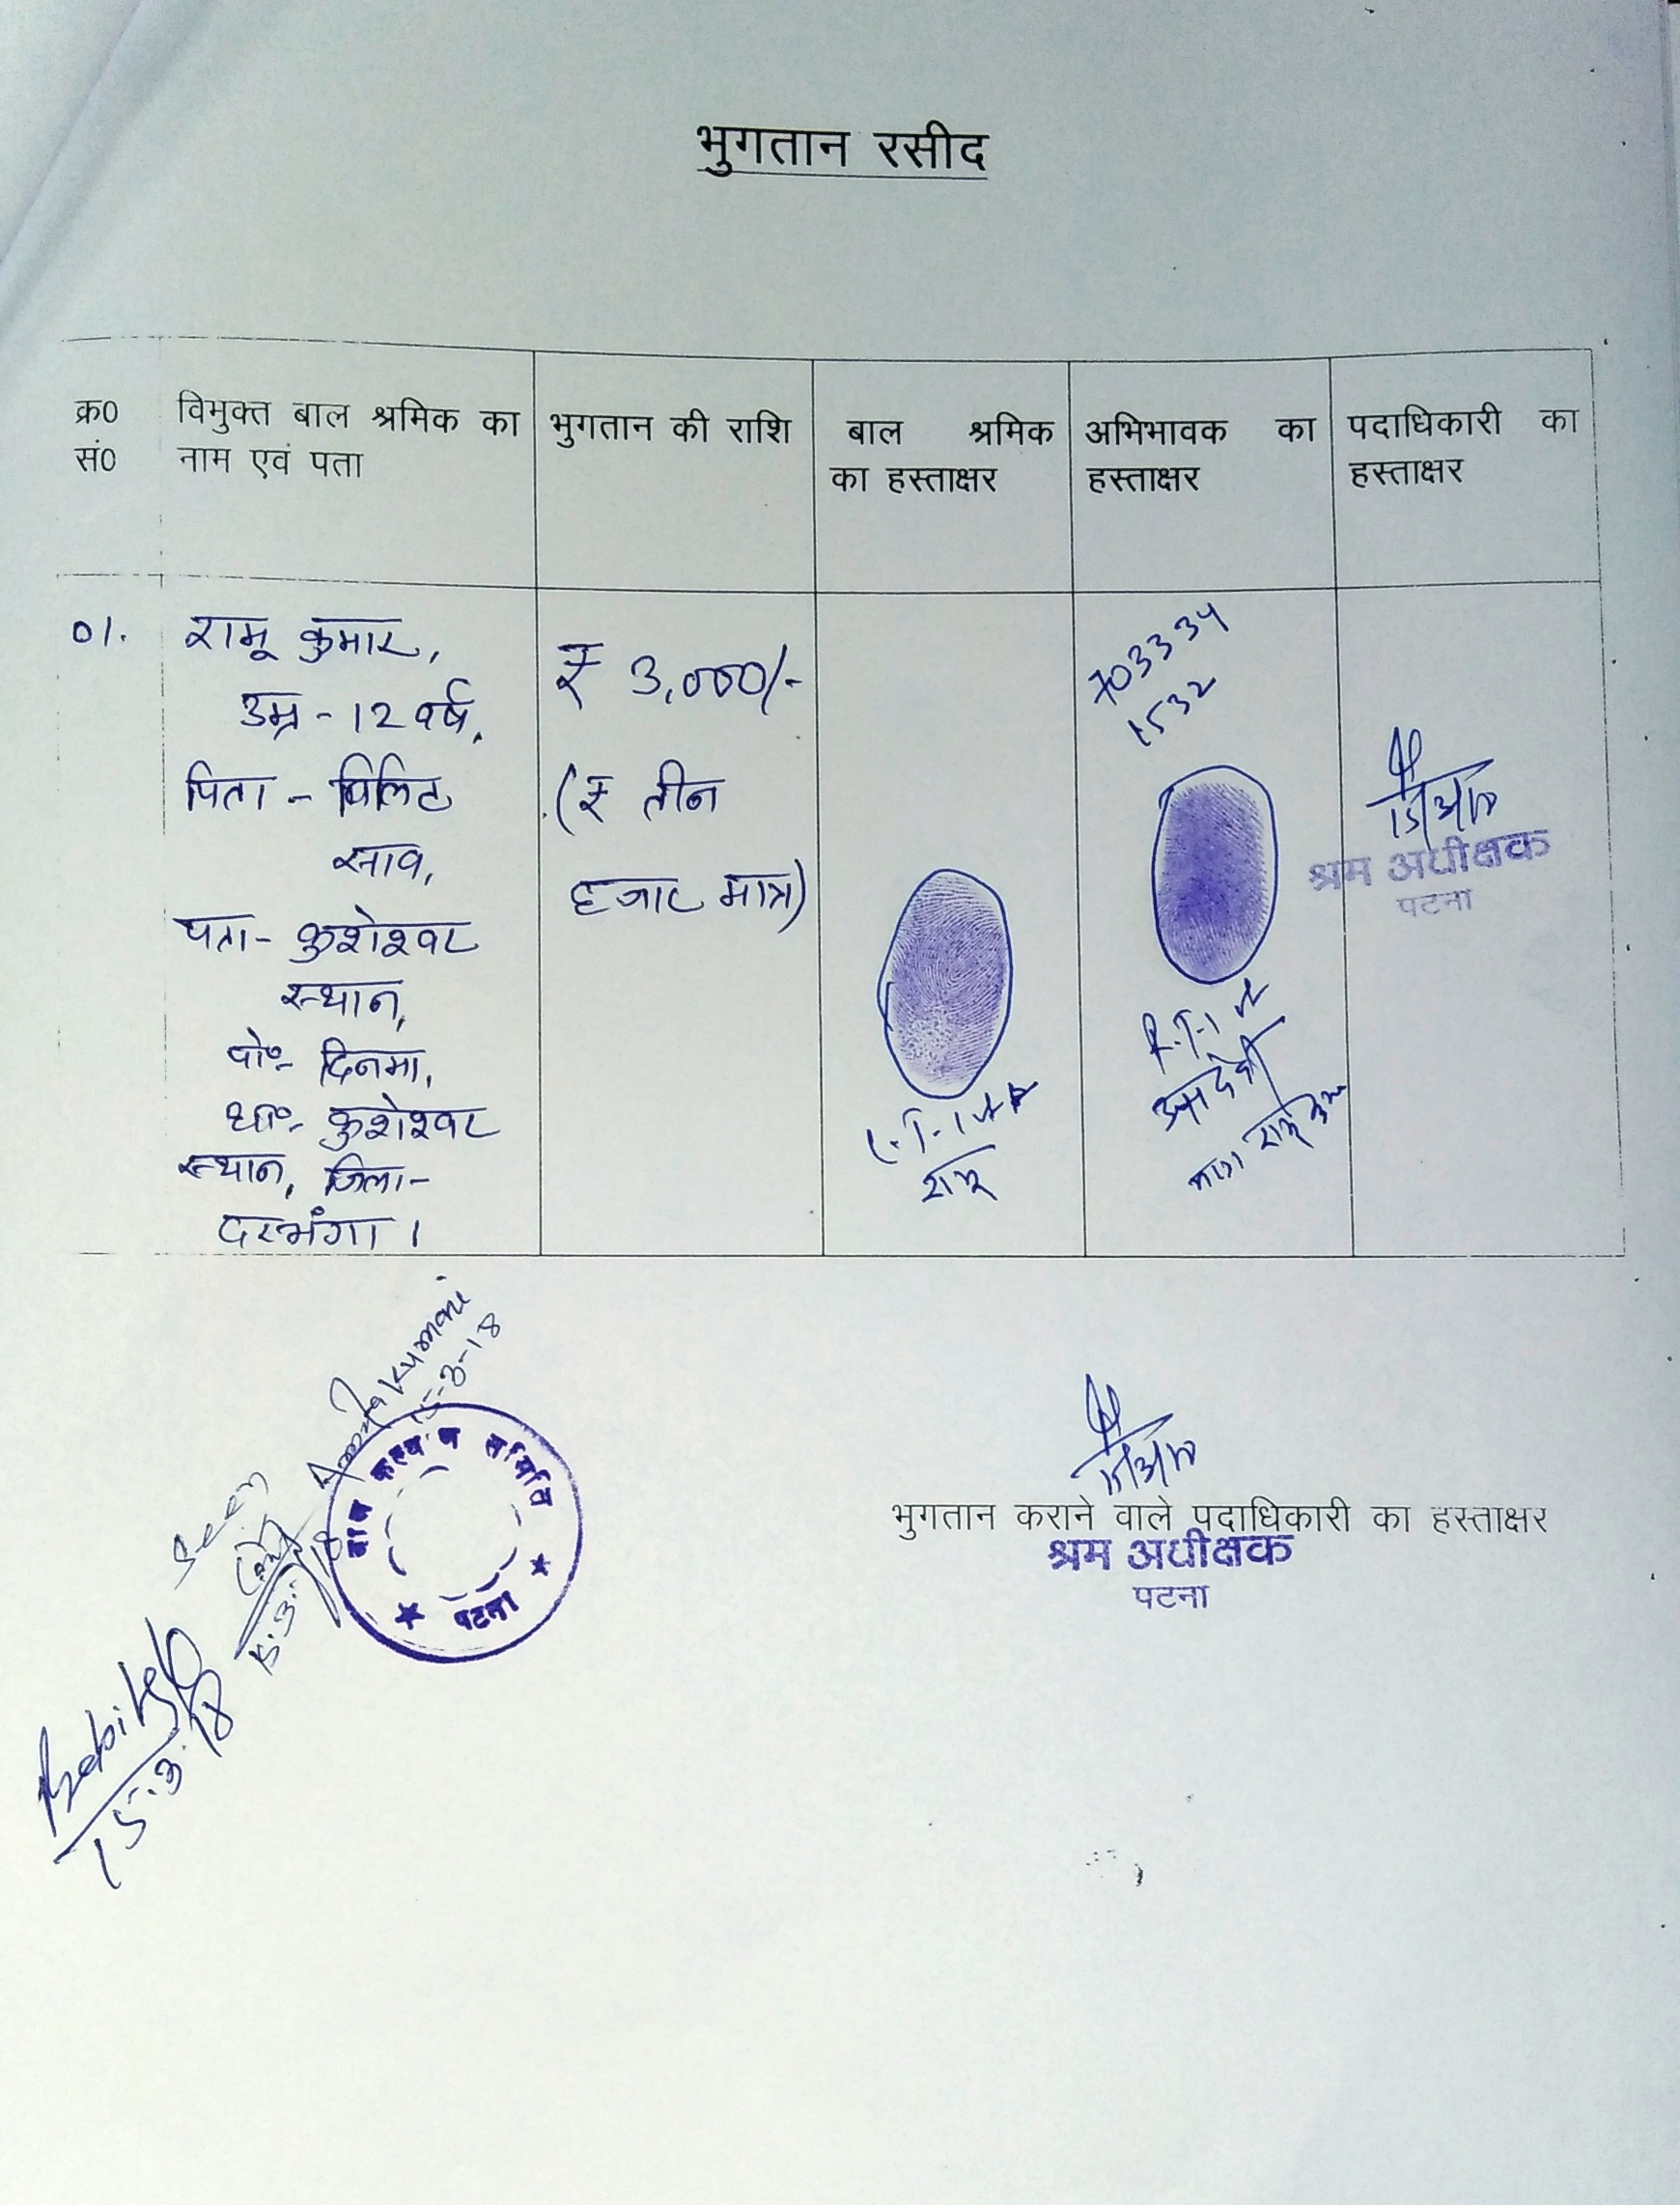 भुगतान रसीद
क्र0 सं0
विमुक्त बाल श्रमिक का
नाम एवं पता
भुगतान की राशि
बाल श्रमिक
का हस्ताक्षर
अभिभावक का
हस्ताक्षर
पदाधिकारी का
हस्ताक्षर
01.
रामू कुमार,
उम्र - 12 वर्ष,
पिता -
साव,
पता - कुशेश्वर
स्थान,
पो०- दिनमा,
था०- कुशेश्वर
स्थान, जिला-
दरभंगा।
₹ 3,000/-
(₹ तीन
हजार मात्र)
L.T.I
रामू
703334
1532
R.T.I
देवी
माता रामू कुमार
श्रम अधीक्षक
पटना
Seen
Kumari
15-3-18
15.3.18
15.3.18
बाल कल्याण समिति
पटना
भुगतान कराने वाले पदाधिकारी का हस्ताक्षर
श्रम अधीक्षक
पटना